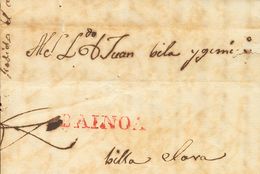 Al L.do Juan vila y gimi.z
BAINOA
billa Clara